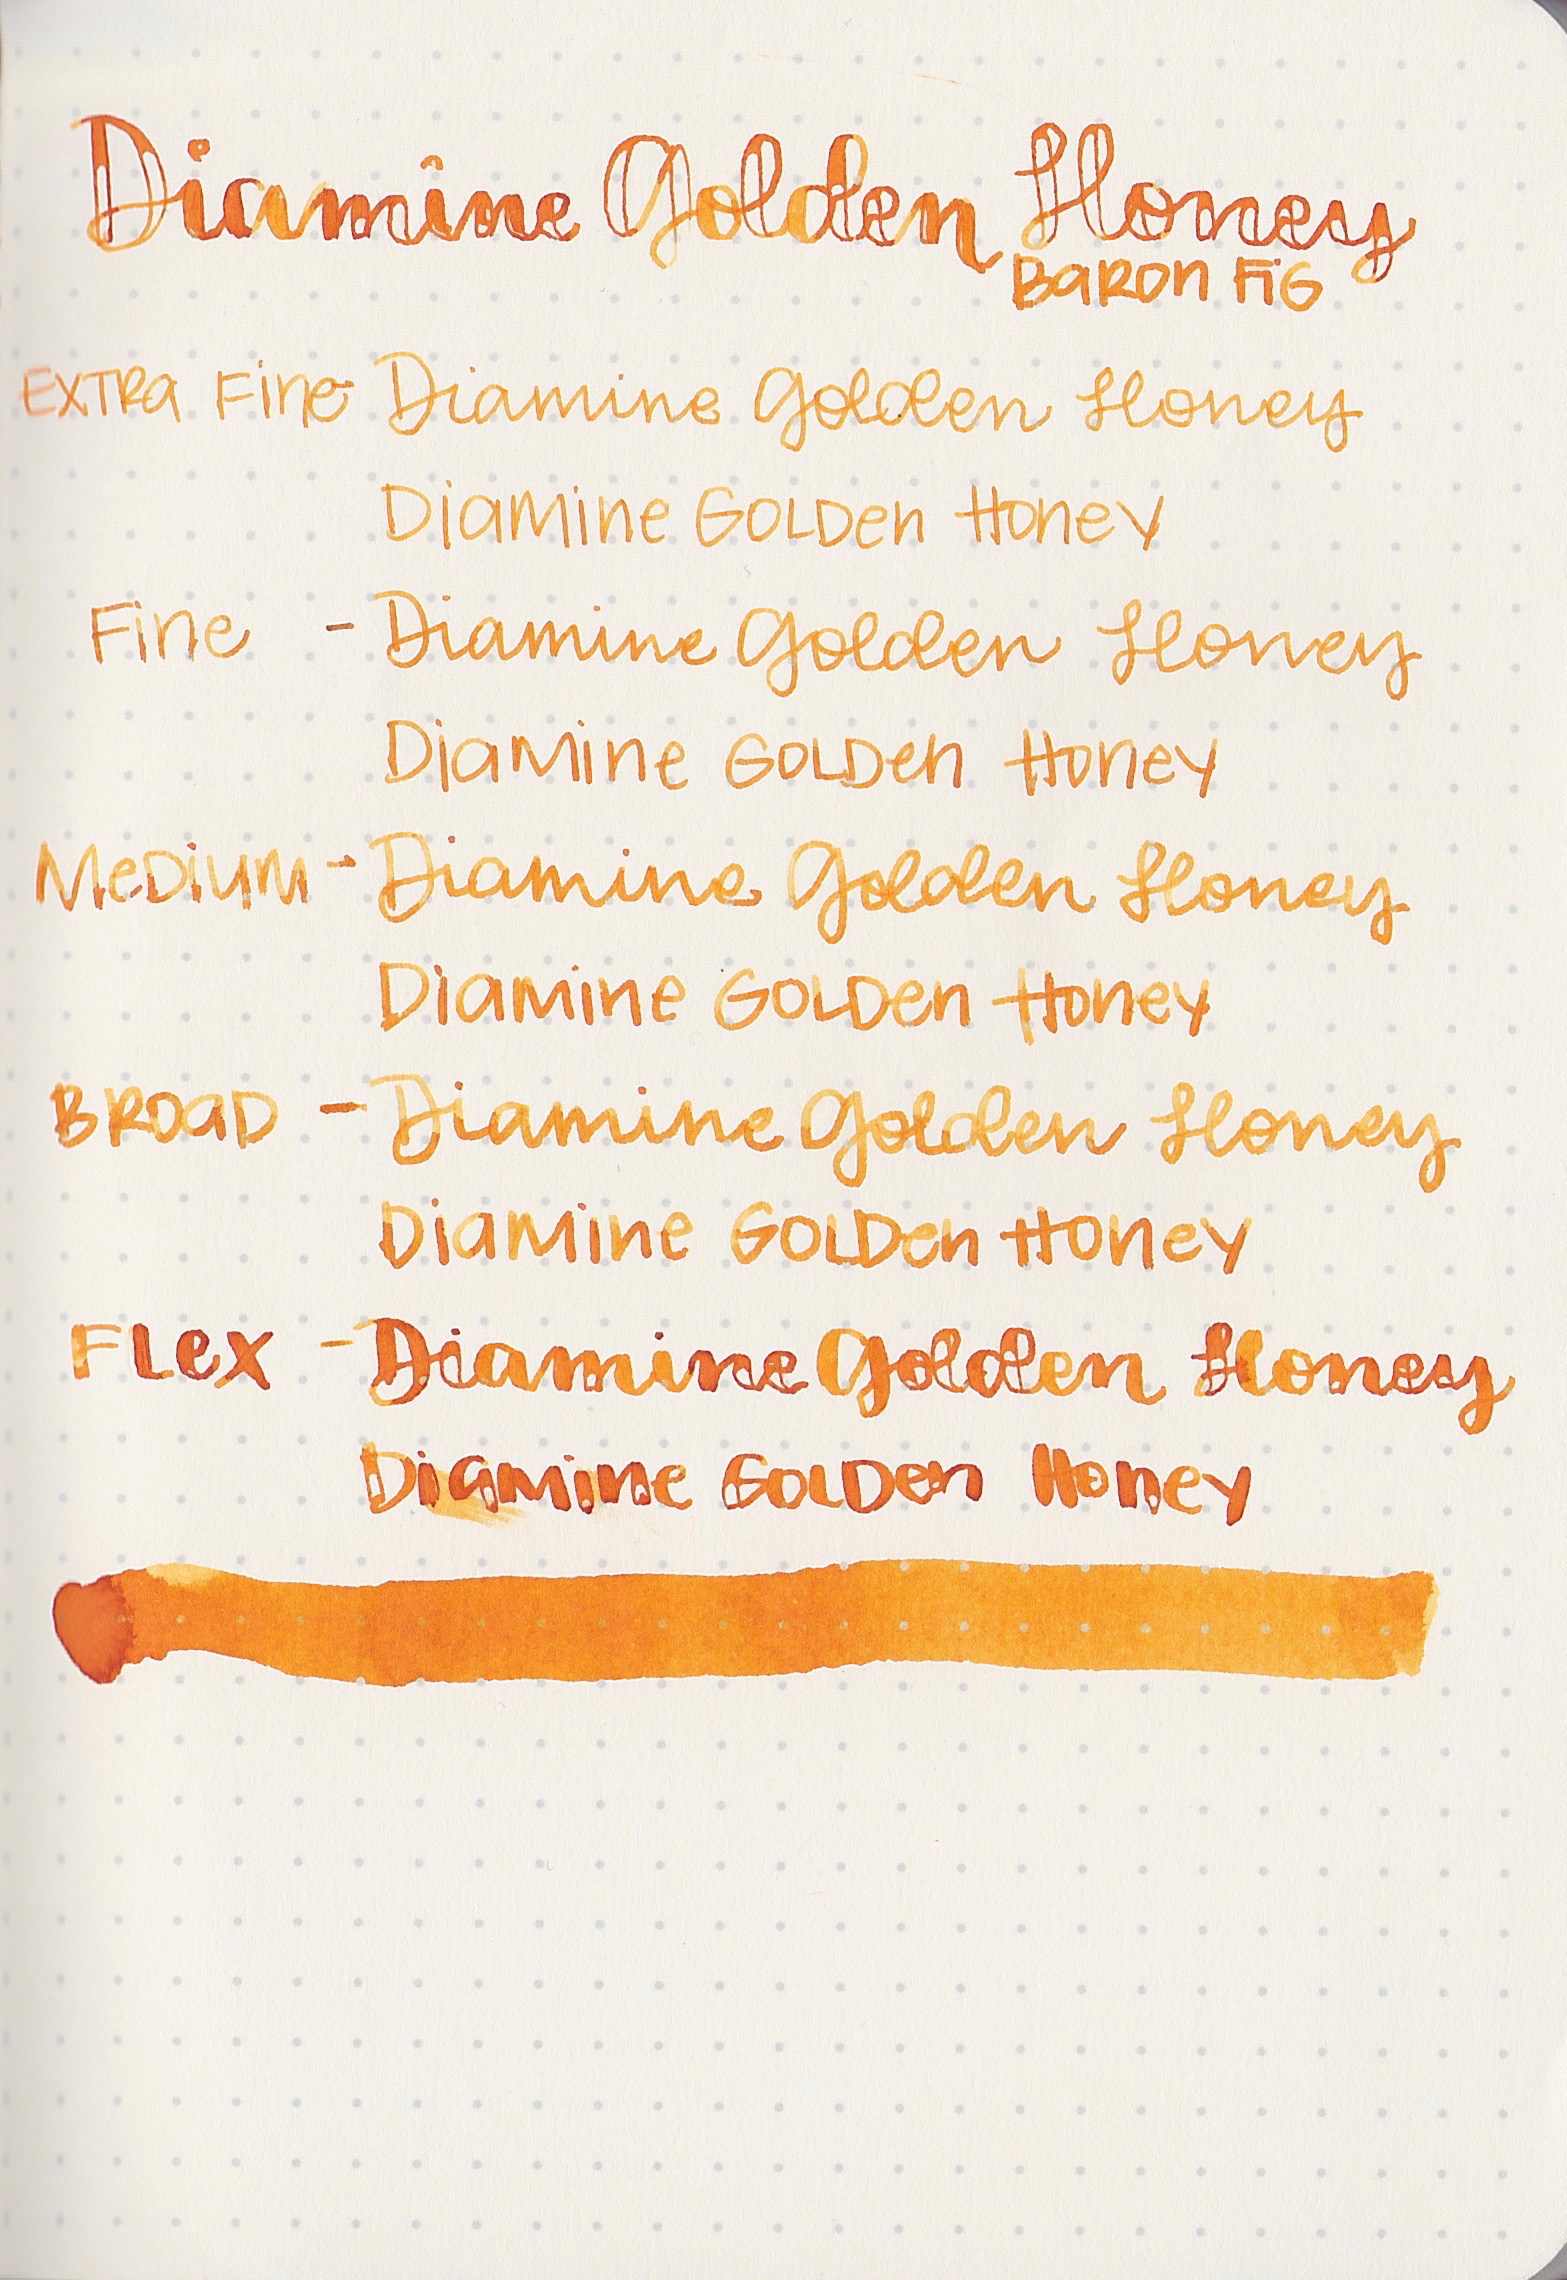 Diamine Golden Honey
Baron Fig
Extra Fine - Diamine Golden Honey
Diamine Golden Honey
Fine - Diamine Golden Honey
Diamine Golden Honey
Medium - Diamine Golden Honey
Diamine Golden Honey
Broad - Diamine Golden Honey
Diamine Golden Honey
Flex - Diamine Golden Honey
Diamine Golden Honey